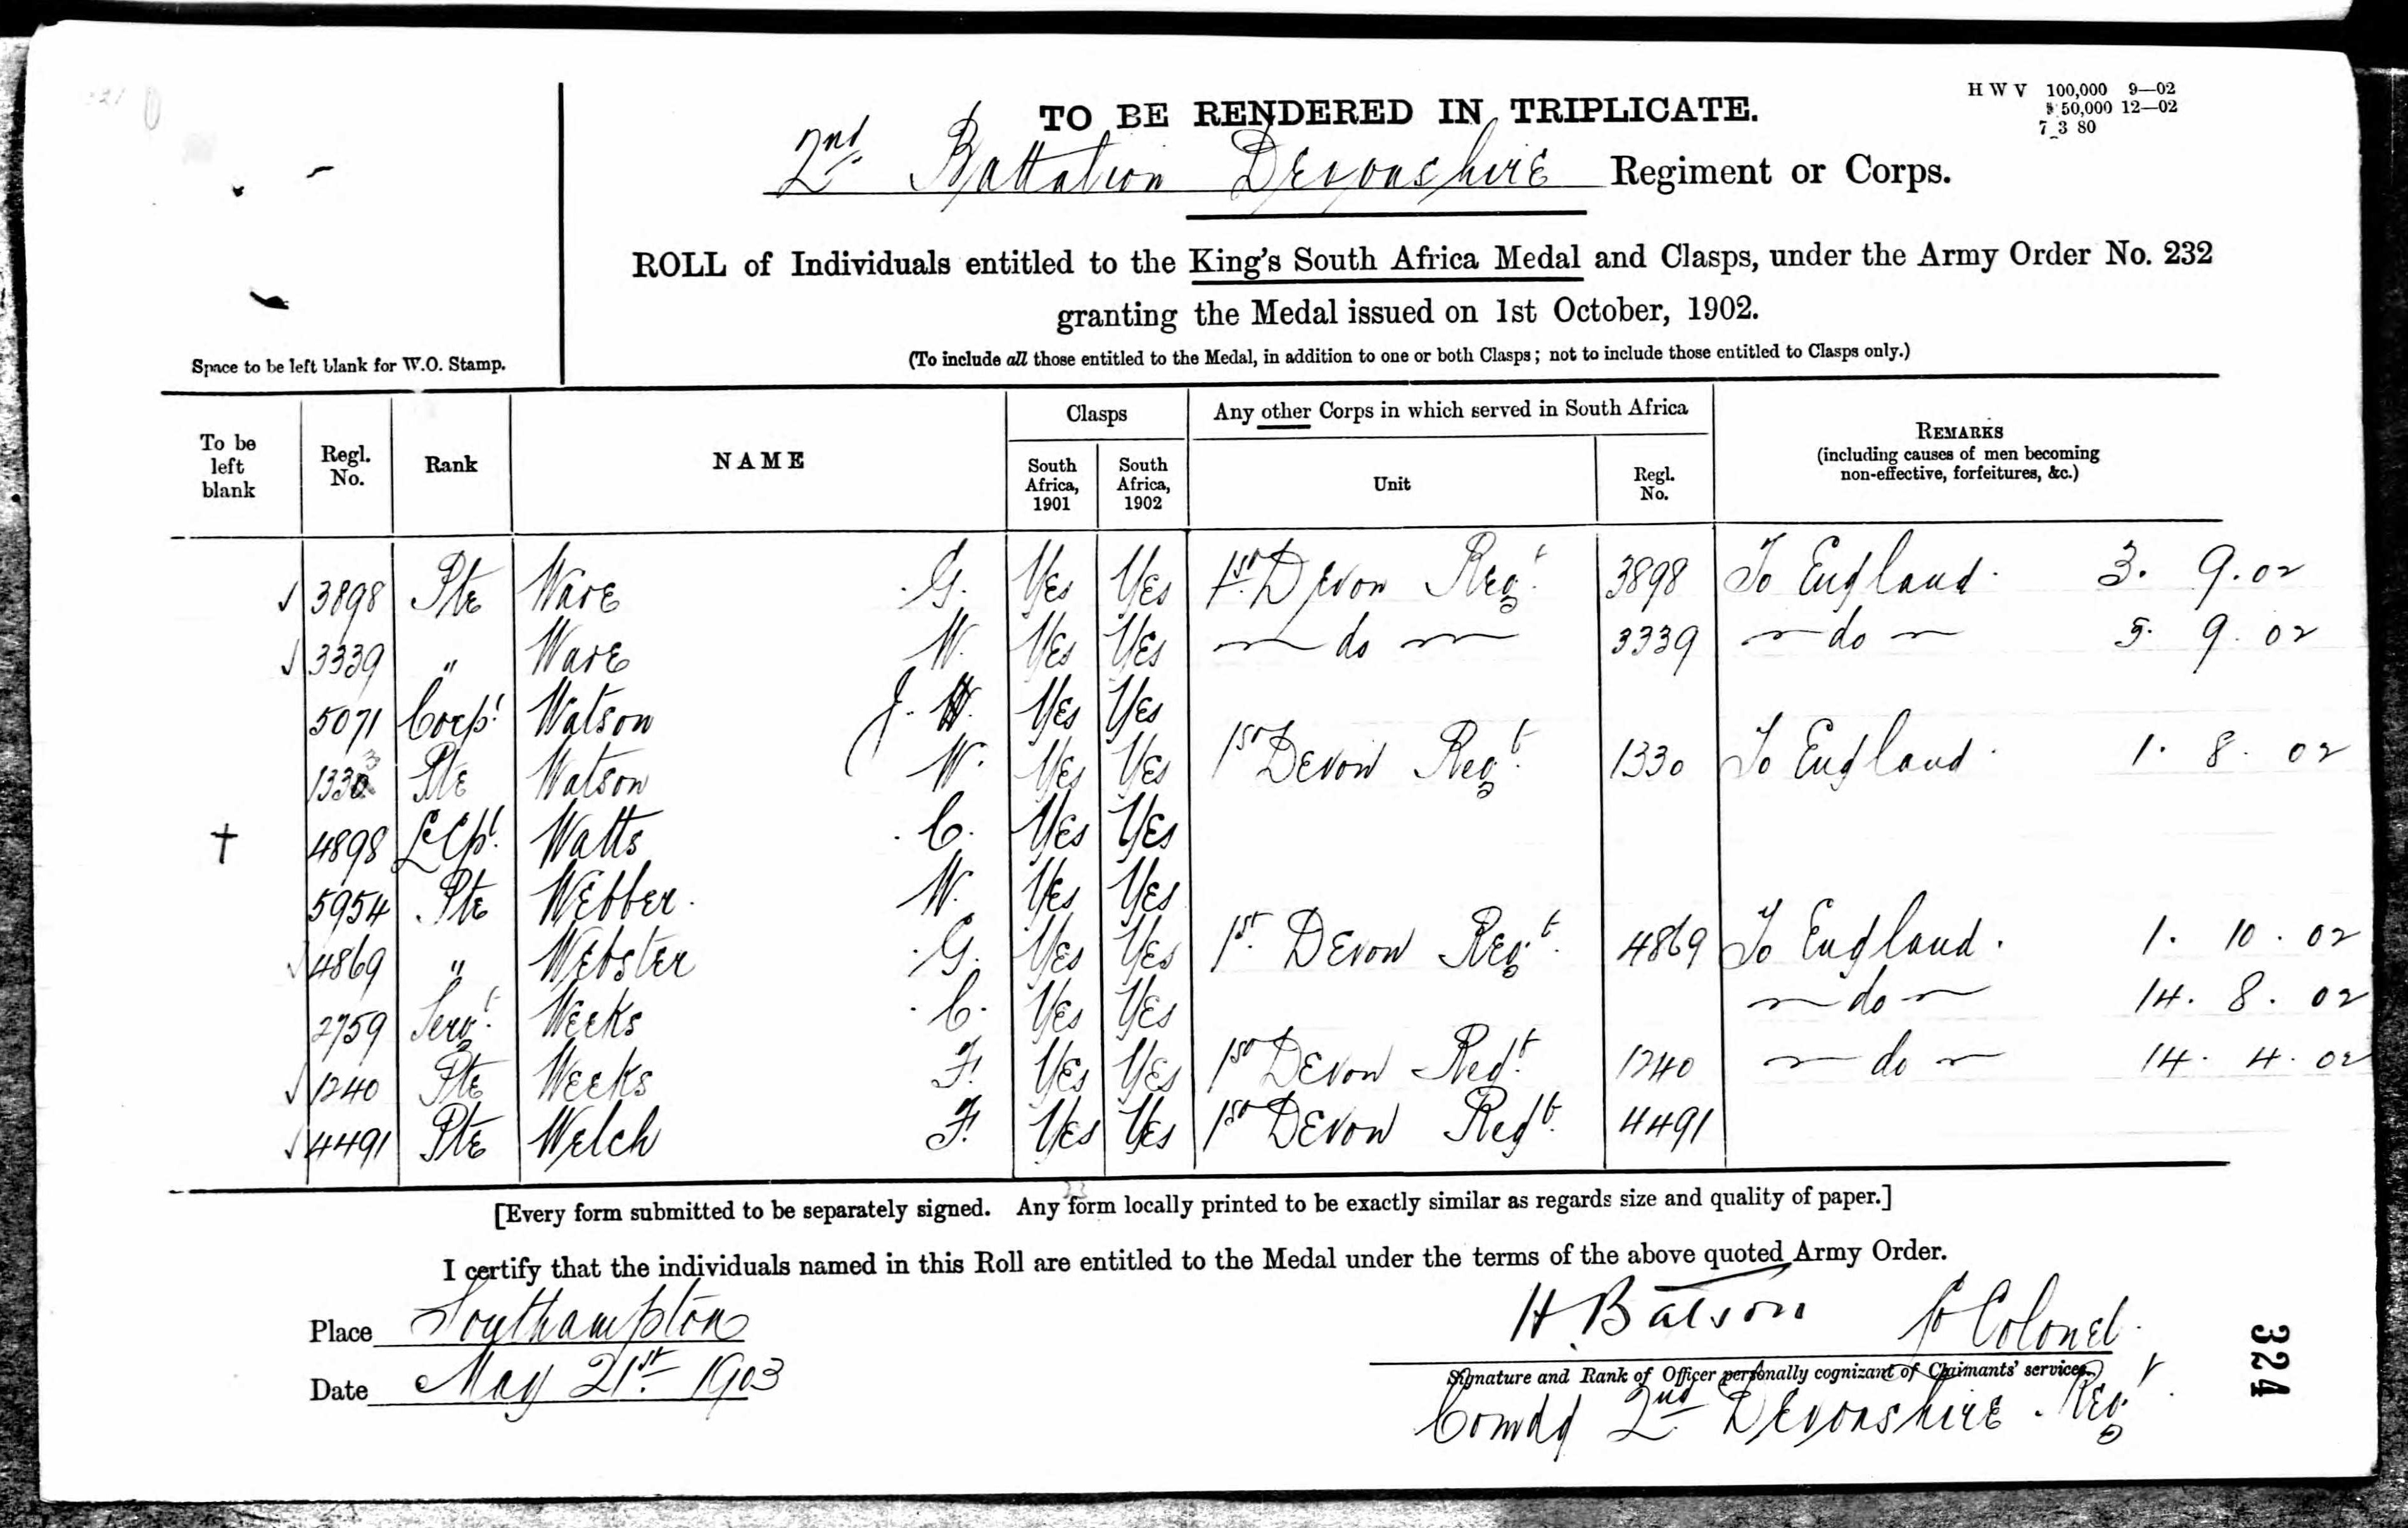 TO BE RENDERED IN TRIPLICATE.
H W V 100,000 9—02
50,000 12—02
7_3 80
2nd Battalion Devonshire Regiment or Corps.
ROLL of Individuals entitled to the King's South Africa Medal and Clasps, under the Army Order No. 232
granting the Medal issued on 1st October, 1902.
(To include all those entitled to the Medal, in addition to one or both Clasps; not to include those entitled to Clasps only.)
Space to be left blank for W.O. Stamp.
To be left blank Regl. No. Rank NAME Clasps South Africa, 1901 South Africa, 1902 Any other Corps in which served in South Africa Unit Regl. No. REMARKS (including causes of men becoming non-effective, forfeitures, &c.)
✓ 3898 Pte Ware G. Yes Yes 1st Devon Regt 3898 To England. 3. 9. 02
✓ 3339 " Ware W. Yes Yes — do — 3339 — do — 5. 9. 02
5071 Corpl Watson J. W. Yes Yes
Pte Watson W. Yes Yes 1st Devon Regt 1330 To England. 1. 8. 02
† 4898 L Cpl Watts C. Yes Yes
5954 Pte Webber. W. Yes Yes
✓ 4869 " Webster G. Yes Yes 1st Devon Regt. 4869 To England. 1. 10. 02
2759 Sergt Weeks C. Yes Yes — do — 14. 8. 02
✓ 1240 Pte Weeks F. Yes Yes 1st Devon Regt. 1240 — do — 14. 4. 02
✓ 4491 Pte Welch F. Yes Yes 1st Devon Regt. 4491
[Every form submitted to be separately signed. Any form locally printed to be exactly similar as regards size and quality of paper.]
I certify that the individuals named in this Roll are entitled to the Medal under the terms of the above quoted Army Order.
Place Southampton
H. Batson Lt Colonel.
Signature and Rank of Officer personally cognizant of Claimants' services.
Date May 21st 1903
Comdg 2nd Devonshire Regt.
324